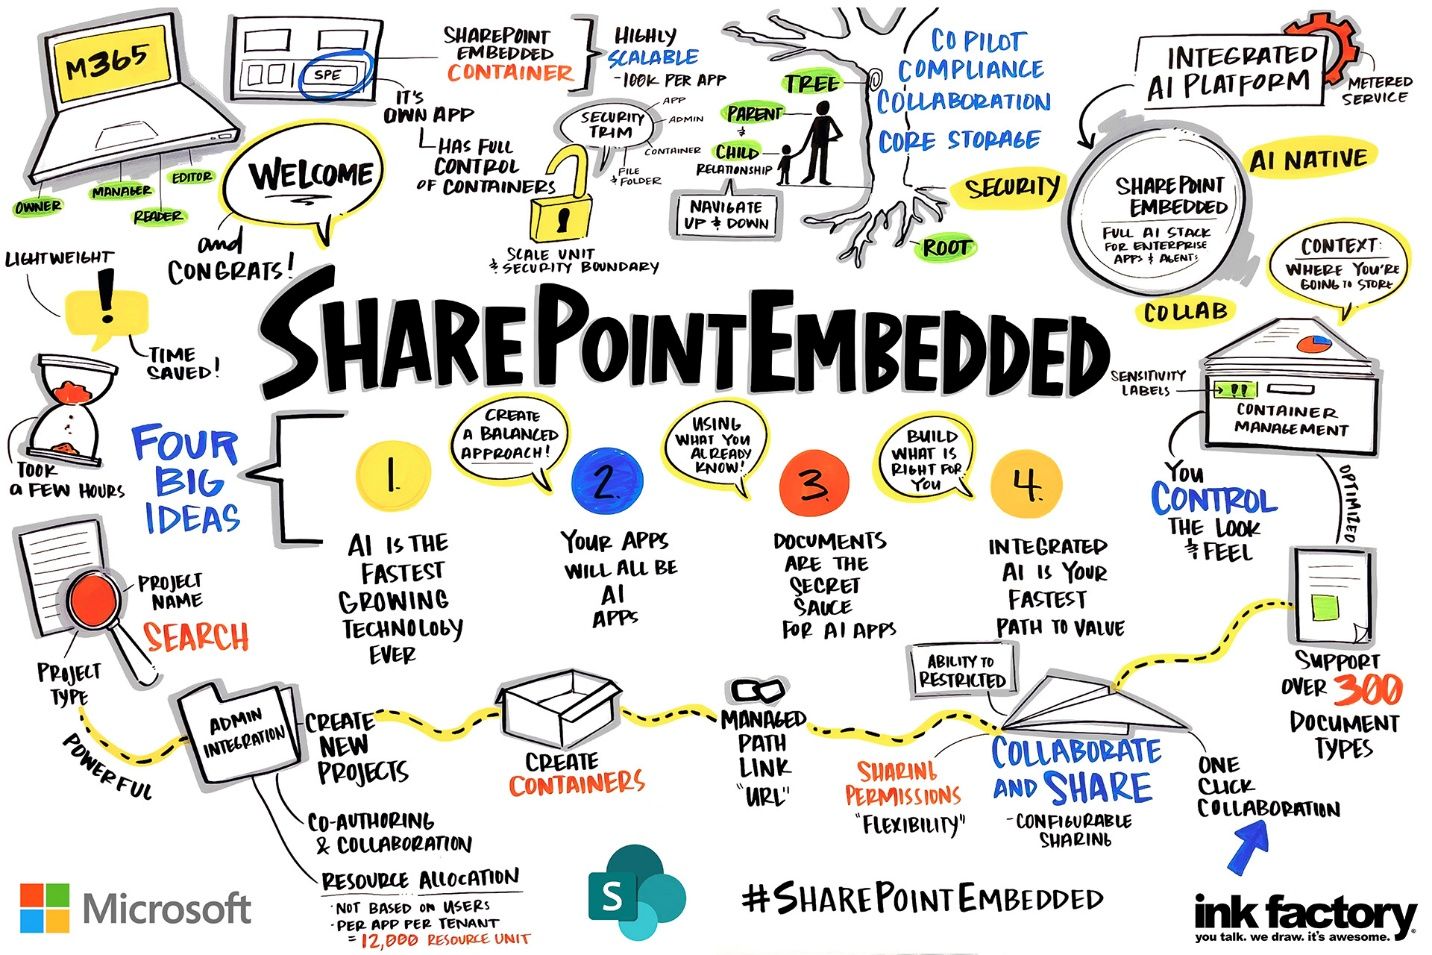 M365
OWNER
MANAGER
READER
EDITOR
SPE
SHAREPOINT
EMBEDDED
CONTAINER
IT'S
OWN APP
HAS FULL
CONTROL
OF CONTAINERS
HIGHLY
SCALABLE
-100K PER APP
WELCOME
and
CONGRATS!
SECURITY
TRIM
APP
ADMIN
CONTAINER
FILE
& FOLDER
SCALE UNIT
& SECURITY BOUNDARY
TREE
PARENT
&
CHILD
RELATIONSHIP
NAVIGATE
UP & DOWN
ROOT
COPILOT
COMPLIANCE
COLLABORATION
CORE STORAGE
SECURITY
INTEGRATED
AI PLATFORM
METERED
SERVICE
AI NATIVE
SHAREPOINT
EMBEDDED
FULL AI STACK
FOR ENTERPRISE
APPS & AGENTS
COLLAB
CONTEXT:
WHERE YOU'RE
GOING TO STORE
LIGHTWEIGHT
!
TIME
SAVED!
TOOK
A FEW HOURS
SHAREPOINT EMBEDDED
SENSITIVITY
LABELS
!!
CONTAINER
MANAGEMENT
YOU
CONTROL
THE LOOK
& FEEL
OPTIMIZED
FOUR
BIG
IDEAS
1.
AI IS THE
FASTEST
GROWING
TECHNOLOGY
EVER
CREATE
A BALANCED
APPROACH!
2.
YOUR APPS
WILL ALL BE
AI
APPS
USING
WHAT YOU
ALREADY
KNOW!
3.
DOCUMENTS
ARE THE
SECRET
SAUCE
FOR AI APPS
BUILD
WHAT IS
RIGHT FOR
YOU
4.
INTEGRATED
AI IS YOUR
FASTEST
PATH TO VALUE
PROJECT
NAME
SEARCH
PROJECT
TYPE
POWERFUL
ADMIN
INTEGRATION
CREATE
NEW
PROJECTS
CO-AUTHORING
& COLLABORATION
RESOURCE ALLOCATION
·NOT BASED ON USERS
·PER APP PER TENANT
= 12,000 RESOURCE UNIT
CREATE
CONTAINERS
MANAGED
PATH
LINK
"URL"
ABILITY TO
RESTRICTED
SHARING
PERMISSIONS
"FLEXIBILITY"
COLLABORATE
AND SHARE
-CONFIGURABLE
SHARING
ONE
CLICK
COLLABORATION
SUPPORT
OVER 300
DOCUMENT
TYPES
Microsoft
S
#SHAREPOINTEMBEDDED
ink factory
you talk. we draw. it's awesome.